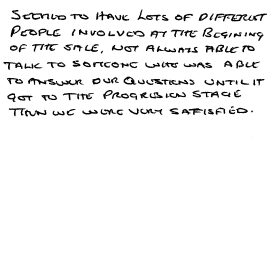 SEEMED TO HAVE LOTS OF DIFFERENT
PEOPLE INVOLVED AT THE BEGINING
OF THE SALE, NOT ALWAYS ABLE TO
TALK TO SOMEONE WHO WAS ABLE
TO ANSWER OUR QUESTIONS UNTIL IT
GOT TO THE PROGRESSION STAGE
THEN WE WERE VERY SATISFIED.